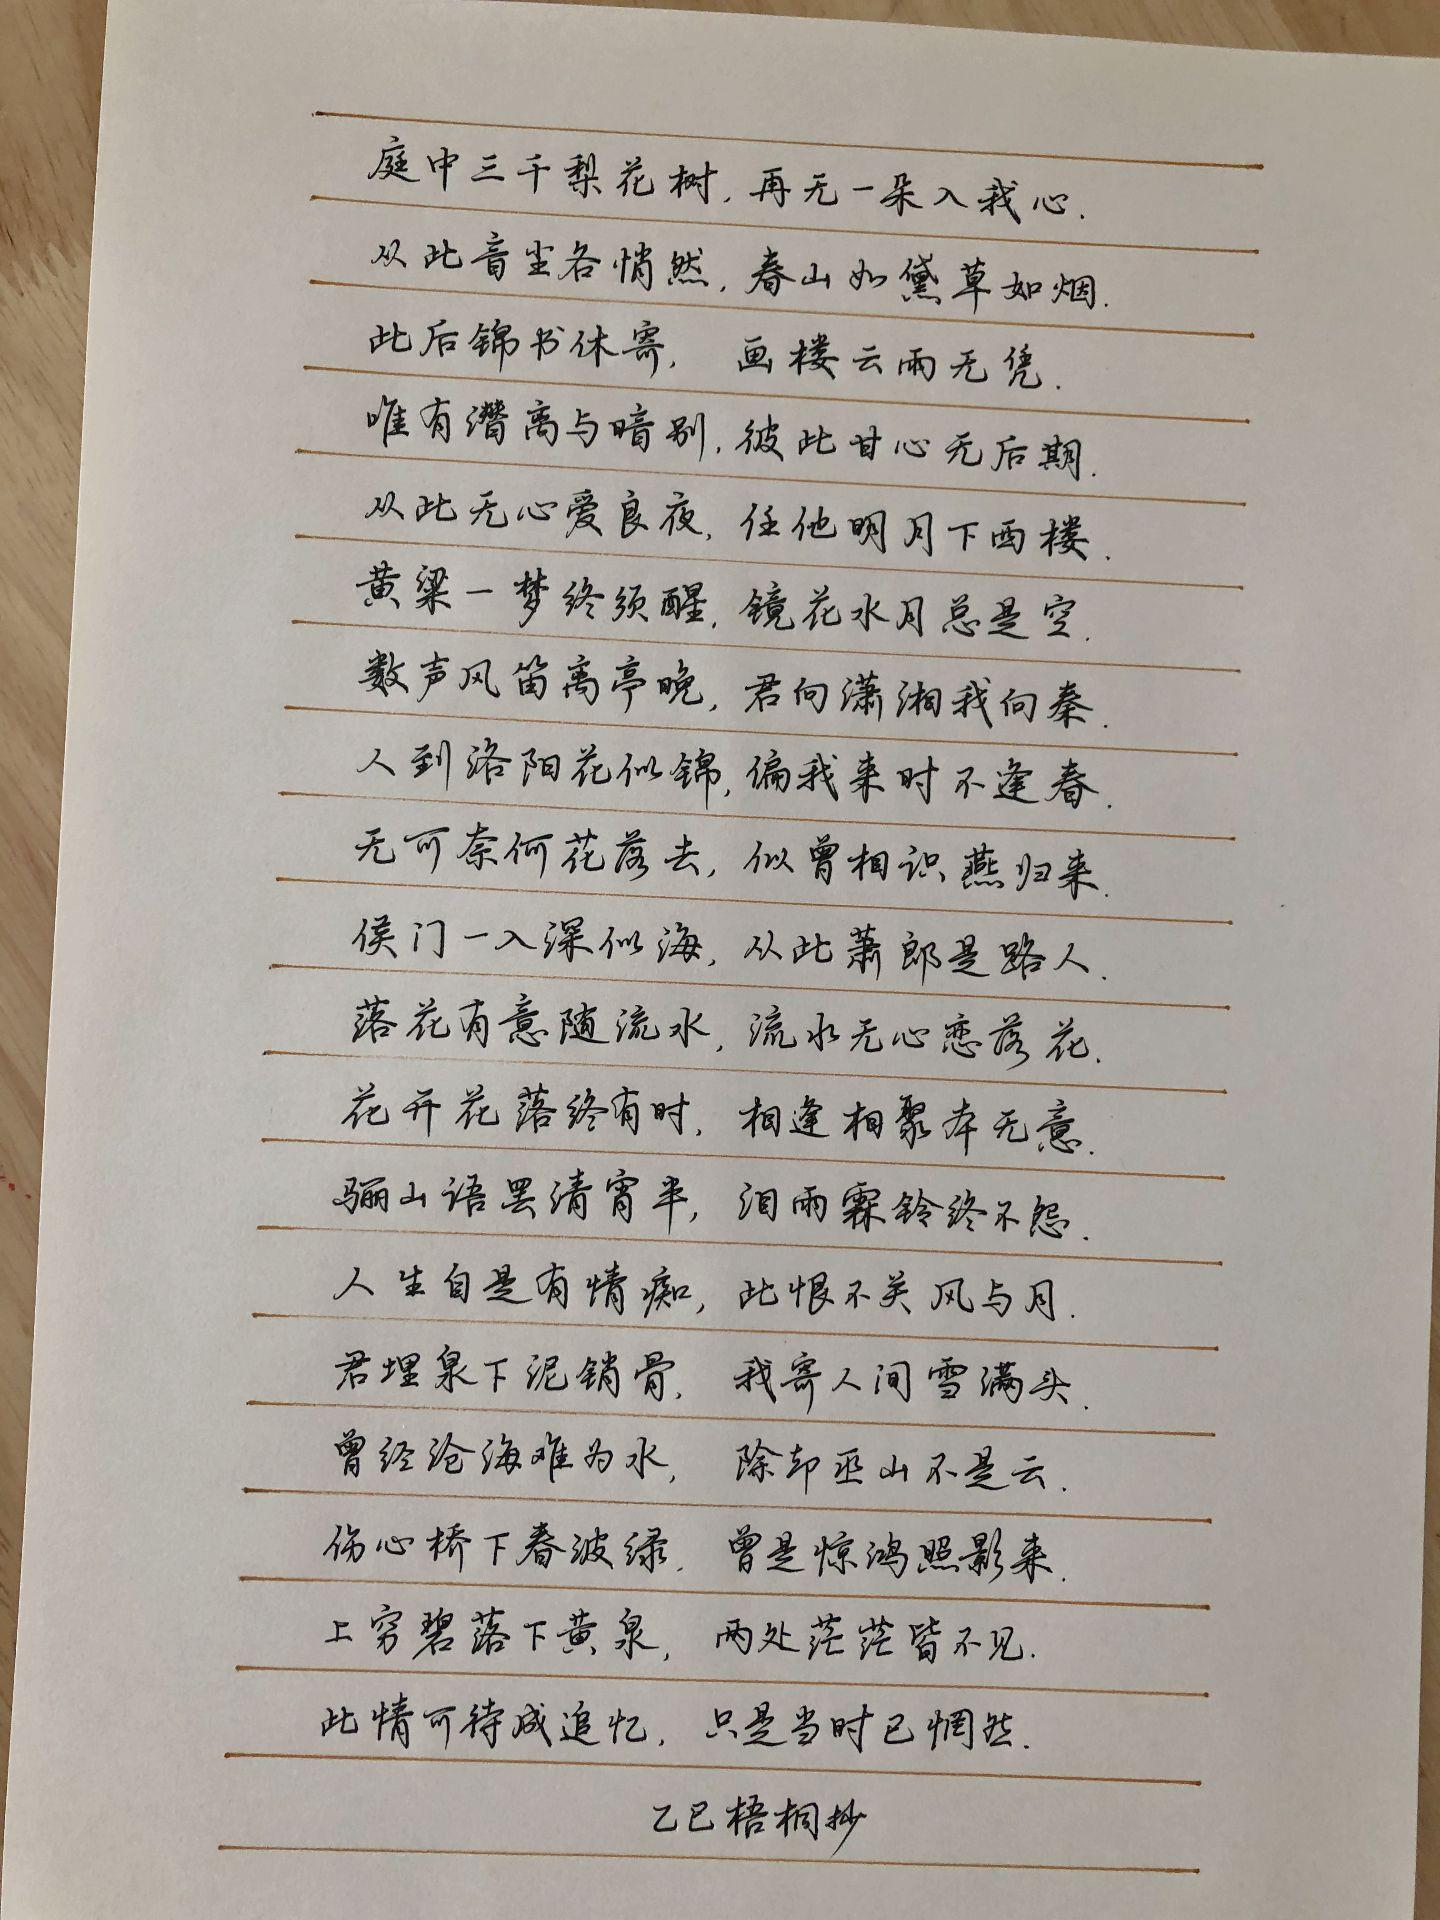 庭中三千梨花树，再无一朵入我心．
从此音尘各悄然，春山如黛草如烟．
此后锦书休寄，画楼云雨无凭．
唯有潜离与暗别，彼此甘心无后期．
从此无心爱良夜，任他明月下西楼．
黄粱一梦终须醒，镜花水月总是空．
数声风笛离亭晚，君向潇湘我向秦．
人到洛阳花似锦，偏我来时不逢春．
无可奈何花落去，似曾相识燕归来．
侯门一入深似海，从此萧郎是路人．
落花有意随流水，流水无心恋落花．
花开花落终有时，相逢相聚本无意．
骊山语罢清宵半，泪雨霖铃终不怨．
人生自是有情痴，此恨不关风与月．
君埋泉下泥销骨，我寄人间雪满头．
曾经沧海难为水，除却巫山不是云．
伤心桥下春波绿，曾是惊鸿照影来．
上穷碧落下黄泉，两处茫茫皆不见．
此情可待成追忆，只是当时已惘然．
乙巳梧桐抄